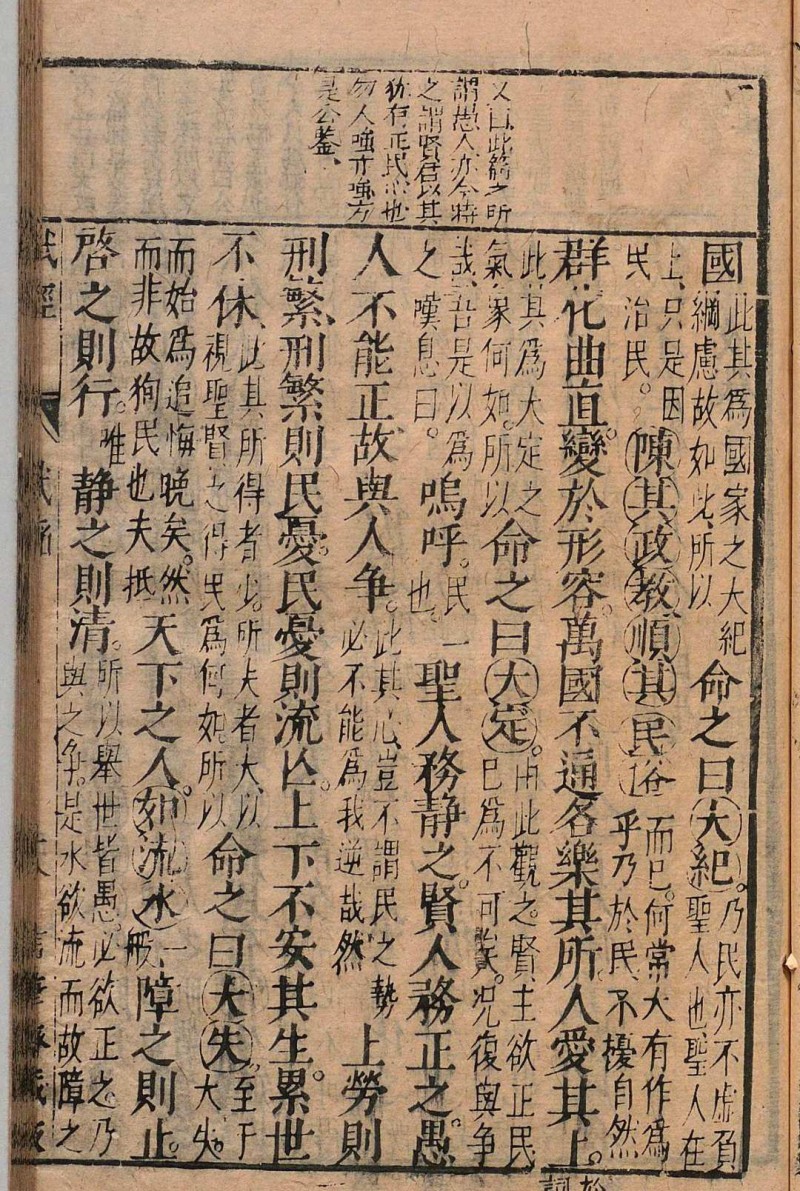 又曰此篇之所
謂愚人亦今時
之謂賢君以其
猶有正民心也
勿人強亦強方
是公鉴
國此其為國家之大紀綱慮故如此所以命之曰大紀乃民亦不虛負聖人也聖人在
上只是因民治民陳其政教順其民俗而已何常大有作為乎乃於民不擾自然
群化曲直變於形容萬國不通各樂其所人愛其上
此其為大定之氣象何如所以命之曰大定由此觀之賢主欲正民已為不可矣況復與争
哉吾是以為之嘆息曰嗚呼民一也聖人務静之賢人務正之愚
人不能正故與人争此其心豈不謂民之勢必不能為我逆哉然上勞則
刑繁刑繁則民憂民憂則流亾上下不安其生累世
不休此其所得者少所失者大以視聖賢之得民為何如所以命之曰大失至于大失
而始為追悔晚矣然而非故狥民也夫抵天下之人如流水一般障之則止
啓之則行唯静之則清所以舉世皆愚必欲正之乃與之争是水欲流而故障之
武經